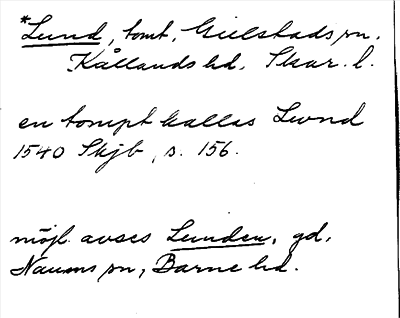 *Lund, tomt, Gillstads sn.
Kållands hd. Skar. l.
en tompt kallas Lwnd
1540 Skjb, s. 156.
möjl. avses Lunden, gd,
Naums sn, Barne hd.